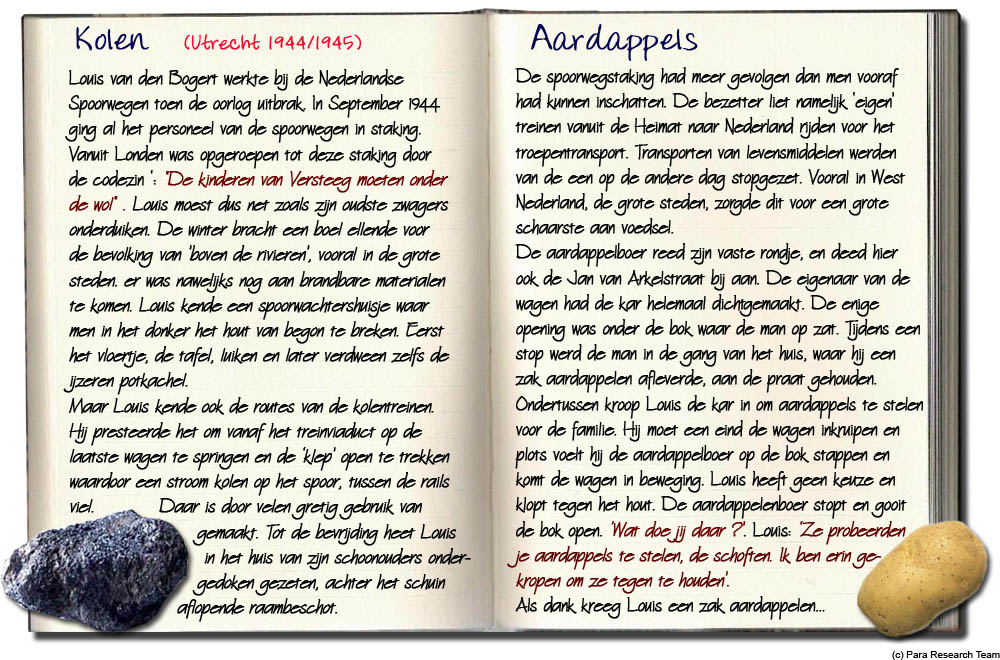 Kolen (Utrecht 1944/1945)
Louis van den Bogert werkte bij de Nederlandse
Spoorwegen toen de oorlog uitbrak. In September 1944
ging al het personeel van de spoorwegen in staking.
Vanuit Londen was opgeroepen tot deze staking door
de codezin ': "De kinderen van Versteeg moeten onder
de wol" . Louis moest dus net zoals zijn oudste zwagers
onderduiken. De winter bracht een boel ellende voor
de bevolking van 'boven de rivieren', vooral in de grote
steden. er was nawelijks nog aan brandbare materialen
te komen. Louis kende een spoorwachtershuisje waar
men in het donker het hout van begon te breken. Eerst
het vloertje, de tafel, luiken en later verdween zelfs de
ijzeren potkachel.
Maar Louis kende ook de routes van de kolentreinen.
Hij presteerde het om vanaf het treinviaduct op de
laatste wagen te springen en de 'klep' open te trekken
waardoor een stroom kolen op het spoor, tussen de rails
viel. Daar is door velen gretig gebruik van
gemaakt. Tot de bevrijding heet Louis
in het huis van zijn schoonouders onder-
gedoken gezeten, achter het schuin
aflopende raambeschot.
Aardappels
De spoorwegstaking had meer gevolgen dan men vooraf
had kunnen inschatten. De bezetter liet namelijk 'eigen'
treinen vanuit de Heimat naar Nederland rijden voor het
troepentransport. Transporten van levensmiddelen werden
van de een op de andere dag stopgezet. Vooral in West
Nederland, de grote steden, zorgde dit voor een grote
schaarste aan voedsel.
De aardappelboer reed zijn vaste rondje, en deed hier
ook de Jan van Arkelstraat bij aan. De eigenaar van de
wagen had de kar helemaal dichtgemaakt. De enige
opening was onder de bok waar de man op zat. Tijdens een
stop werd de man in de gang van het huis, waar hij een
zak aardappelen afleverde, aan de praat gehouden.
Ondertussen kroop Louis de kar in om aardappels te stelen
voor de familie. Hij moet een eind de wagen inkruipen en
plots voelt hij de aardappelboer op de bok stappen en
komt de wagen in beweging. Louis heeft geen keuze en
klopt tegen het hout. De aardappelenboer stopt en gooit
de bok open. 'Wat doe jij daar ?'. Louis: 'Ze probeerden
je aardappels te stelen, de schoften. Ik ben erin ge-
kropen om ze tegen te houden'.
Als dank kreeg Louis een zak aardappelen...
(c) Para Research Team